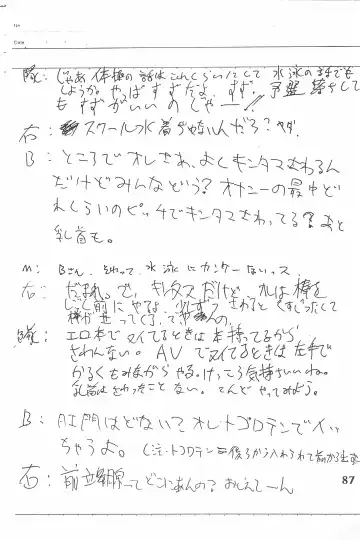 隊：じゃあ体操の話はこれくらいにして水泳の話でも
しようか。やっぱすずだよ、すず。
も すずがいいのじゃー!!
右：スクール水着ぢゃないんだろ?
B：ところでオレさあ、よくキンタマさわるん
だけどみんなどう?オナニーの最中ど
れくらいのピッチでキンタマさわってる?あと
乳首も。
M：Bさん、それって、水泳にカンケーないっス
右：だまれ。で、 だけど オレは棒を
さわると くすぐったくて
隊：エロ本でヌイてるときは本持ってるから
さわんない。AVでヌイてるときは左手で
かるくもみながらやる。けっこう気持ちいいね。
乳首はさわったことない。こんどやってみよう。
B：肛門はどない?オレトコロテンでイッ
ちゃうよ。(注・トコロテン=後ろから入れられて前から出す
右：前立腺ってどこにあんの?おしえてーん
87